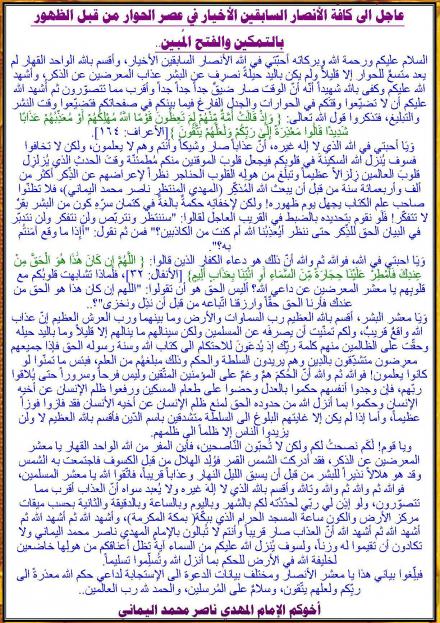 عاجل الى كافة الأنصار السابقين الأخيار في عصر الحوار من قبل الظهور
بالتمكين والفتح المُبين..
السلام عليكم ورحمة الله وبركاته أحبّتي في الله الأنصار السابقين الأخيار، وأقسم بالله الواحد القهار لم
يعد متّسعٌ للحوار إلا قليلاً ولم يكن باليد حيلة نصرف عن البشر عذاب المعرضين عن الذكر، وأشهد
الله عليكم وكفى بالله شهيداً أنّه الوقت صار ضيقٌ جداً جداً جداً وأقرب مما تتصوّرون ثم أشهد الله
عليكم أن لا تضيعوا وقتكم في الحوارات والجدل الفارغ فيما بينكم في صفحاتكم فتضيّعوا وقت النشر
والتبليغ، فتذكروا قول الله تعالى: { وَإِذْ قَالَتْ أُمَّةٌ مِّنْهُمْ لِمَ تَعِظُونَ قَوْمًا اللَّهُ مُهْلِكُهُمْ أَوْ مُعَذِّبُهُمْ عَذَابًا
شَدِيدًا قَالُوا مَعْذِرَةً إِلَىٰ رَبِّكُمْ وَلَعَلَّهُمْ يَتَّقُونَ }[الأعراف: ١٦٤].
ويَا أحبتي في الله الذي لا إله غيره، إنّ عذاباً صار وشيكاً وأنتم وهم لا يعلمون، ولكن لا تخافوا
فسوف يُنزل الله السكينة في قلوبكم فيجعل قلوب الموقنين منكم مُطمئنّة وقت الحدث الذي يُزلزل
قلوب العالمين زلزالاً عظيماً وتبلغ من هوله القلوب الحناجر نظراً لإعراضهم عن الذكر أكثر من
ألف وأربعمائة سنة من قبل أن يبعث الله المُذكّر (المهدي المنتظر ناصر محمد اليماني)، فلا تظنّوا
صاحب علم الكتاب يجهل يوم ظهوره! ولكن لإخفائه حكمةٌ بالغةٌ في كتمان سرّه كون من البشر بقرٌ
لا تتفكّر! فلو نقوم بتحديده بالضبط في القريب العاجل لقالوا: "سننتظر ونتربّص ولن نتفكر ولن نتدبّر
في البيان الحق للذكر حتى ننظر أيُعذبنا الله أم كنت من الكاذبين؟" فمن ثم نقول: "أإذا ما وقع آمنتم
به؟".
ويَا أحبتي في الله، فوالله ثم والله أنّ ذلك هو دعاء الكفار الذين قالوا: { اللَّهُمَّ إِن كَانَ هَٰذَا هُوَ الْحَقَّ مِنْ
عِندِكَ فَأَمْطِرْ عَلَيْنَا حِجَارَةً مِّنَ السَّمَاءِ أَوِ ائْتِنَا بِعَذَابٍ أَلِيمٍ }[الأنفال: ٣٢]، فلماذا تشابهت قلوبكم مع
قلوبهم يا معشر المعرضين عن داعي الله؟ أليس الحق هو أن تقولوا: "اللهم إن كان هذا هو الحق من
عندك فأرنا الحق حقّاً وارزقنا اتّباعه من قبل أن نذل ونخزى"؟..
ويَا معشر البشر، أقسم بالله العظيم رب السماوات والأرض وما بينهما ورب العرش العظيم إنّ عذاب
الله واقعٌ قريبٌ، ولكم تمنّيت أن يصرفه عن المسلمين ولكن سينالهم ما ينالهم إلا قليلاً وما باليد حيله
وحقّت على الظالمين منهم كلمة ربّك إذ يُدعَونَ للاحتكام الى كتاب الله وسنة رسوله الحق فإذا جميعهم
معرضون متشدّقون بالدين وهم يريدون السلطة والحكم وذلك مبلغهم من العلم، فبئس ما تمنّوا لو
كانوا يعلمون! فوالله ثم والله أنّ الحُكمَ همٌّ وغمٌّ على المؤمنين المتّقين وليس فرحاً وسروراً حتى يلاقوا
ربّهم، فإن وجدوا أنفسهم حكموا بالعدل وحضوا على طعام المسكين ورفعوا ظلم الإنسان عن أخيه
الإنسان وحكموا بما أنزل الله من حدوده الحق لمنع ظلم الإنسان عن أخيه الأنسان فقد فازوا فوزاً
عظيماً، وأما إذا لم يكن إلا غايتهم البلوغ الى السلطة متشدقين باسم الدّين فأقسم بالله العظيم لا ولن
يزيدوا الناس إلا ظلماً الى ظلمهم.
ويا قوم! لَكم نصحتُ لكم ولكن لا تُحبّون النّاصحين، فأين المفر من الله الواحد القهار يا معشر
المعرضين عن الذكر، فقد أدركت الشمس القمر فوُلد الهلال من قبل الكسوف فاجتمعت به الشمس
وقد هو هلالاً نذيراً للبشر من قبل أن يسبق الليل النهار وعذاباً قريباً، فاتّقوا الله يا معشر المسلمين،
فوالله ثم والله ثم والله وتالله وأقسم بالله الذي لا إله غيره ولا يُعبد سواه أنّ العذاب أقرب مما
تتصوّرون، ولو إذن لي ربّي لحدّثته لكم بالشهر وباليوم وبالساعة وبالدقيقة والثانية بحسب ميقات
مركز الأرض والكون ساعة المسجد الحرام الذي ببكّة( بمكة المكرمة)، وأشهد الله ثم أشهد الله ثم
أشهد الله ثم أشهد الله أنّ العذاب صار قريباً وأنتم لا تُبالون بالإمام المهدي ناصر محمد اليماني ولا
تكادون أن تقيموا له وزناً، ولسوف يُنزل الله عليكم من السماء آية تظل أعناقكم من هولها خاضعين
لخليفة الله في الأرض للحكم بما أنزل الله وتُسلّموا تسليماً.
فبلّغوا بياني هذا يا معشر الأنصار ومختلف بيانات الدعوة الى الإستجابة لداعي حكم الله معذرةً الى
ربّكم ولعلهم يتّقون، وسلامٌ على المرسلين، والحمد لله رب العالمين..
أخوكم الإمام المهدي ناصر محمد اليماني